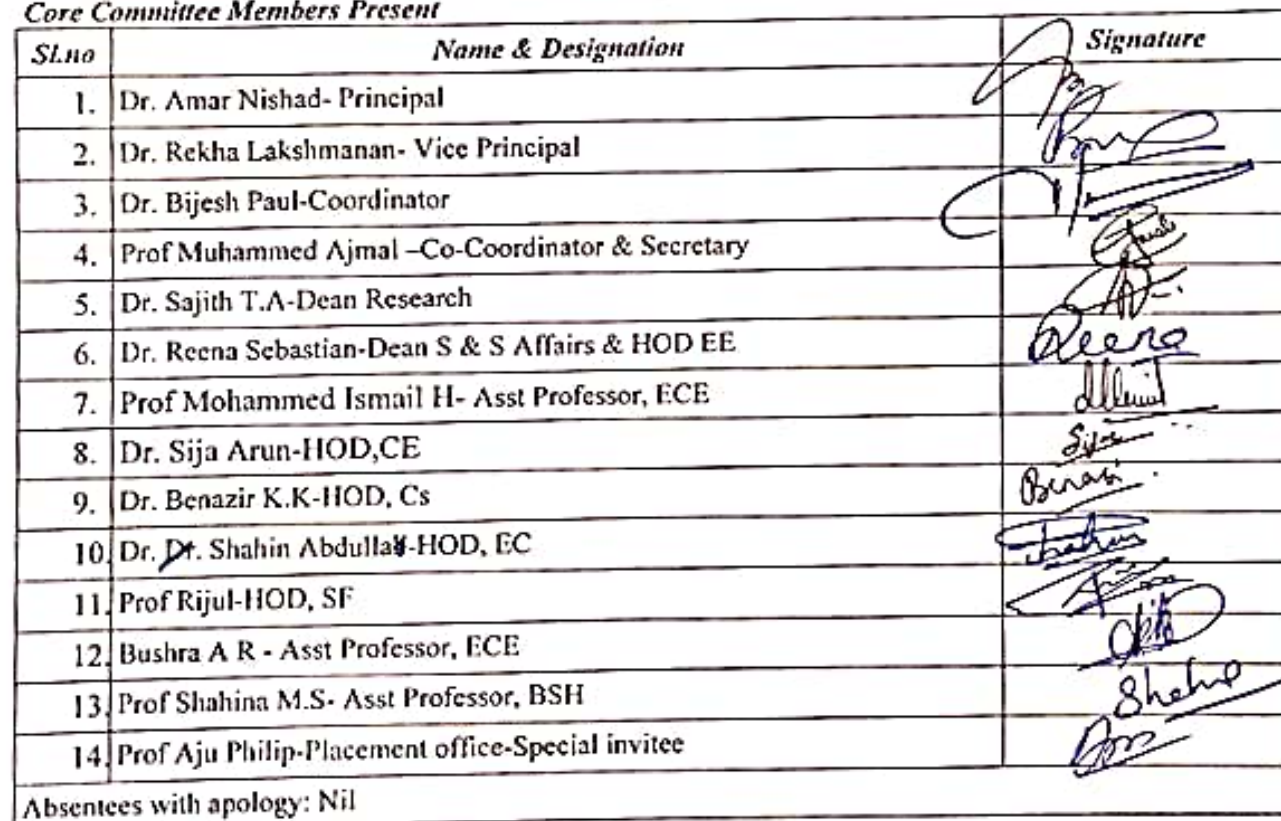 Core Committee Members Present
Sl.no Name & Designation Signature
1. Dr. Amar Nishad- Principal
2. Dr. Rekha Lakshmanan- Vice Principal
3. Dr. Bijesh Paul-Coordinator
4. Prof Muhammed Ajmal –Co-Coordinator & Secretary
5. Dr. Sajith T.A-Dean Research
6. Dr. Reena Sebastian-Dean S & S Affairs & HOD EE Reena
7. Prof Mohammed Ismail H- Asst Professor, ECE
8. Dr. Sija Arun-HOD,CE Sija
9. Dr. Benazir K.K-HOD, Cs
10. Dr. Dr. Shahin Abdullay-HOD, EC
11. Prof Rijul-HOD, SF
12. Bushra A R - Asst Professor, ECE
13. Prof Shahina M.S- Asst Professor, BSH
14. Prof Aju Philip-Placement office-Special invitee
Absentees with apology: Nil